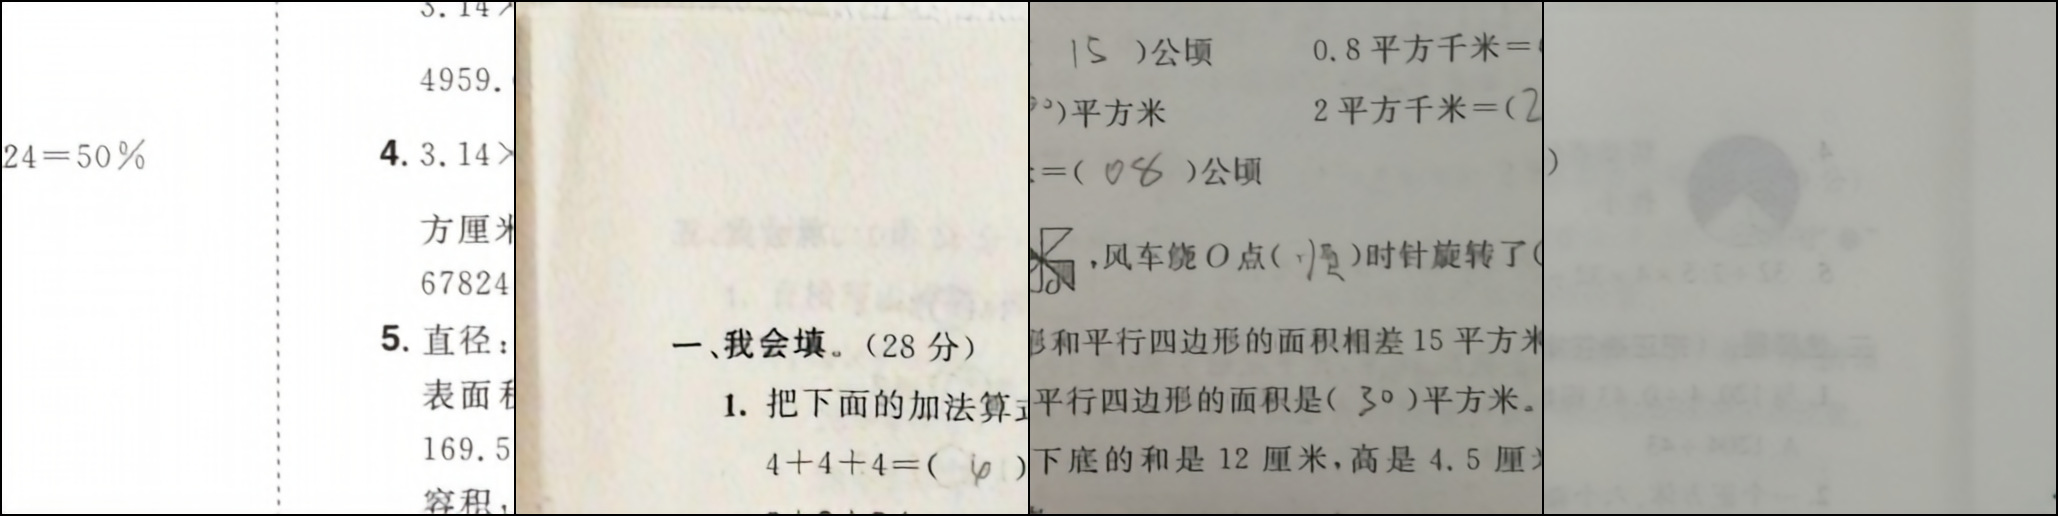 3.14
4959.
24=50%
4. 3.14×
方厘米
67824
5. 直径:
表面积
169.5
容积:
一、我会填。(28 分)
1. 把下面的加法算式
4+4+4=( 4 )
15 )公顷 0.8 平方千米=(
)平方米 2 平方千米=(2
=( 08 )公顷
,风车绕 O 点( 顺 )时针旋转了(
形和平行四边形的面积相差 15 平方米
平行四边形的面积是( 30 )平方米。
下底的和是 12 厘米,高是 4.5 厘米
)